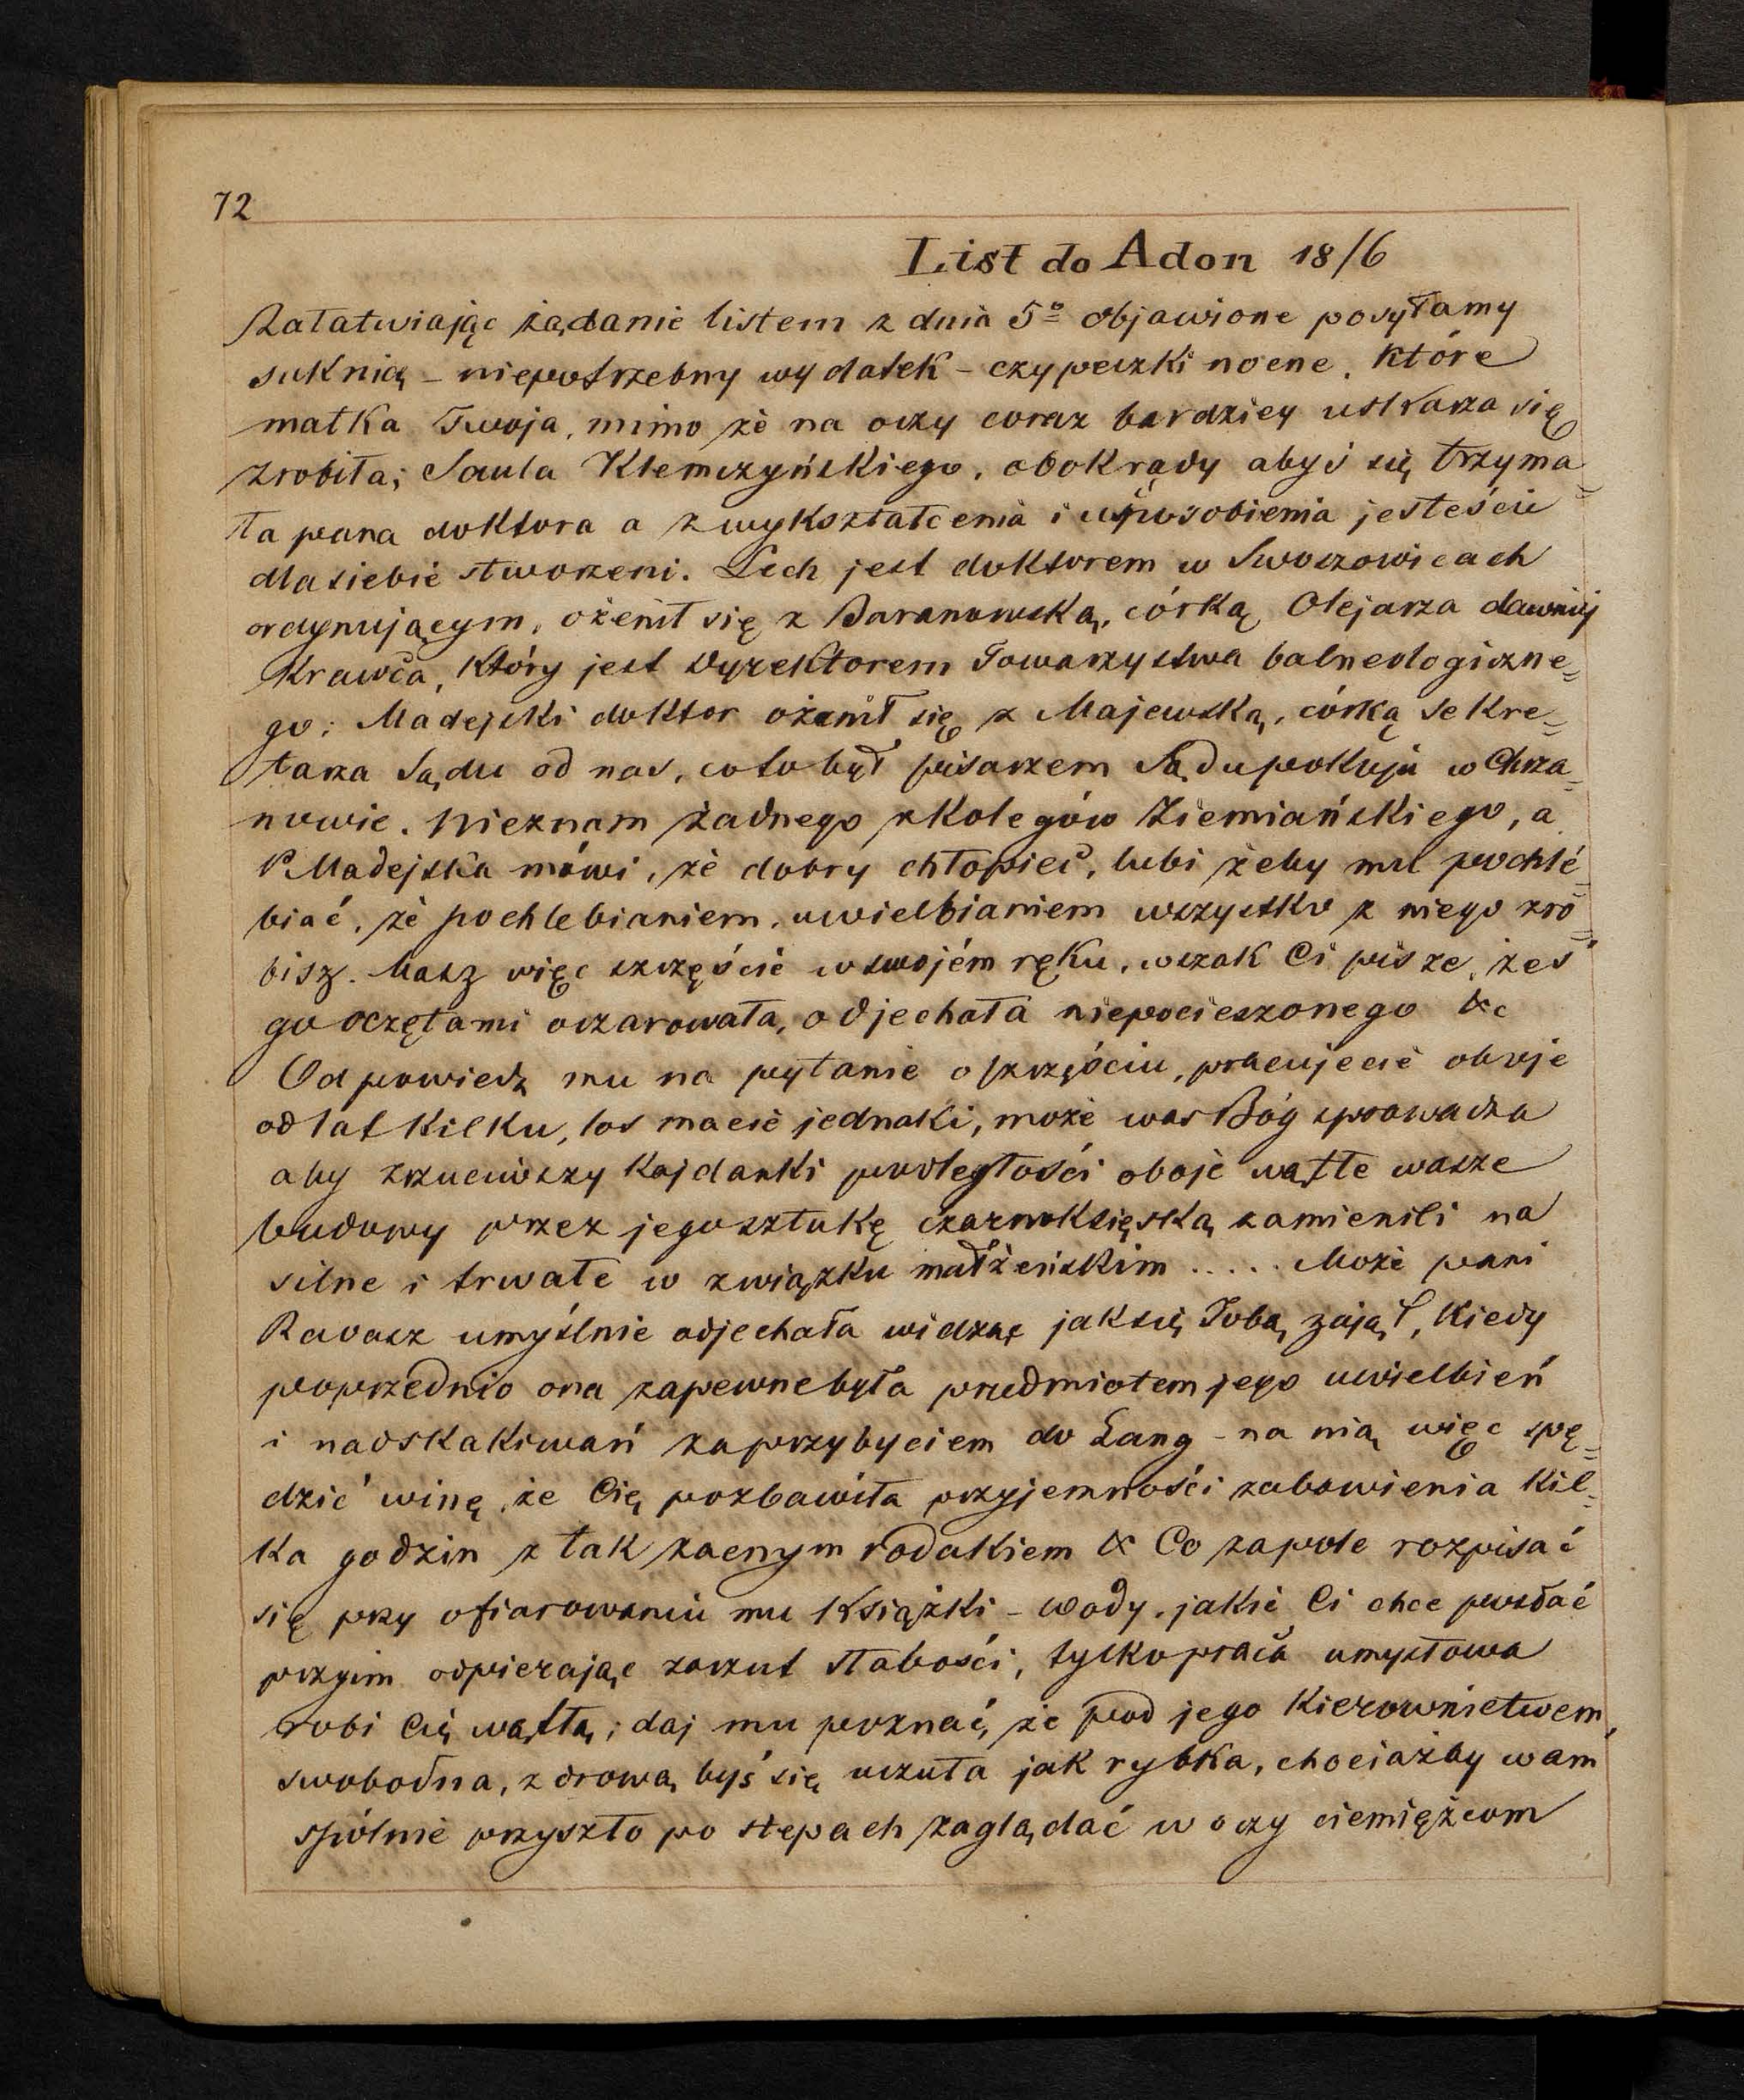 72
List do Adon 18/6
Załatwiając żądanie listem z dnia 5º objawione posyłamy
suknią – niepotrzebny wydatek – czypeczki nocne, które
matka Twoja, mimo że na oczy coraz bardziey uskarza się
zrobiła; Saula Klemczyńskiego, obok rady abyś się trzyma=
ła pana doktora a z wykształcenia i usposobienia jesteście
dla siebie stworzeni. Lech jest doktorem w Swoszowicach
ordynującym, ożenił się z Baranowską, córką Olejarza dawniej
Krawca, który jest Dyrektorem Towarzystwa balneologiczne=
go; Madejski doktor ożenił się z Majewską, córką Sekre=
tarza Sądu od nas, co to był pisarzem Sądu pokoju w Chrza=
nowie. Nieznam żadnego z kolegów Ziemiańskiego, a
P. Madejska mówi, że dobry chłopiec, lubi żeby mu pochlé=
biać, że pochlebianiem, uwielbianiem wszystko z niego zro=
bisz. Masz więc szczęście w swojém ręku, wszak Ci pisze, żeś
go oczętami oczarowała, odjechała niepocieszonego &c
Odpowiedz mu na pytanie o szczęściu, pracujecie oboje
od lat kilku, los macie jednaki, może was Bóg sprowadza
aby zrzuciwszy kajdanki podległości oboje wątłe wasze
budowy przez jego sztukę czarnoksięską zamienili na
silne i trwałe w związku małżeńskim ..... Może pani
Ravasz umyślnie odjechała widząc jak się Tobą zajął, kiedy
poprzednio ona zapewne była przedmiotem jego uwielbień
i nadskakiwań za przybyciem do Lang – na nią więc spę=
dzić winę, że Cię pozbawiła przyjemności zabawienia kil=
ka godzin z tak zacnym rodakiem & Co za pole rozpisać
się przy ofiarowaniu mu książki – wody, jakie Ci chce posłać
przyim odpierając zarzut słabości, tylko praca umysłowa
robi Cię wątłą; daj mu poznać, że pod jego kierownictwem,
swobodna, zdrową byś się uczuła jak rybka, chociażby wam
spólnie przyszło po stepach zaglądać w oczy ciemiężcom